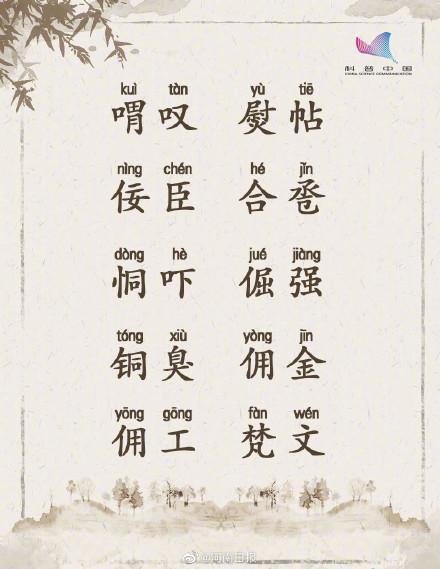 科普中国
CHINA SCIENCE COMMUNICATION
kuì tàn yù tiē
喟叹 熨帖
nìng chén hé jǐn
佞臣 合卺
dòng hè jué jiàng
恫吓 倔强
tóng xiù yòng jīn
铜臭 佣金
yōng gōng fàn wén
佣工 梵文
@河南日报